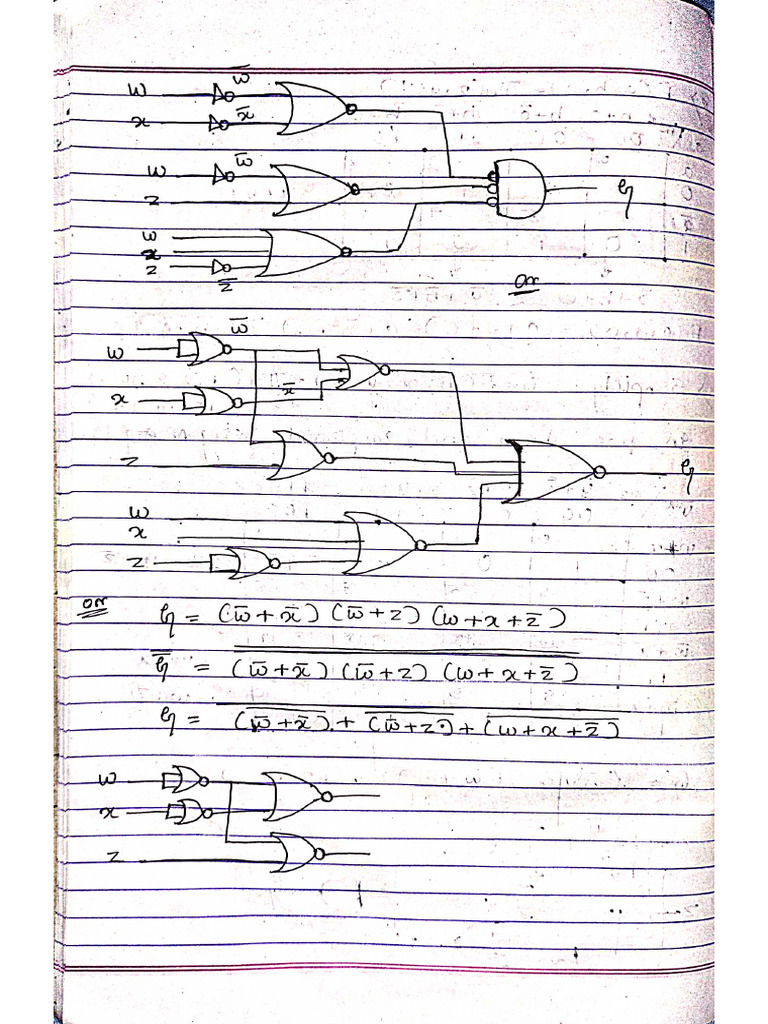 w w̅
x x̅
w w̅
z
y
w
x
z z̅
or
w w̅
x x̅
z
y
w
x
z
or y = (w̅ + x̅) (w̅ + z) (w + x + z̅)
y̅ = \overline{\overline{(w̅ + x̅) (w̅ + z) (w + x + z̅)}}
y = \overline{\overline{(w̅ + x̅)} + \overline{(w̅ + z)} + \overline{(w + x + z̅)}}
w
x
z